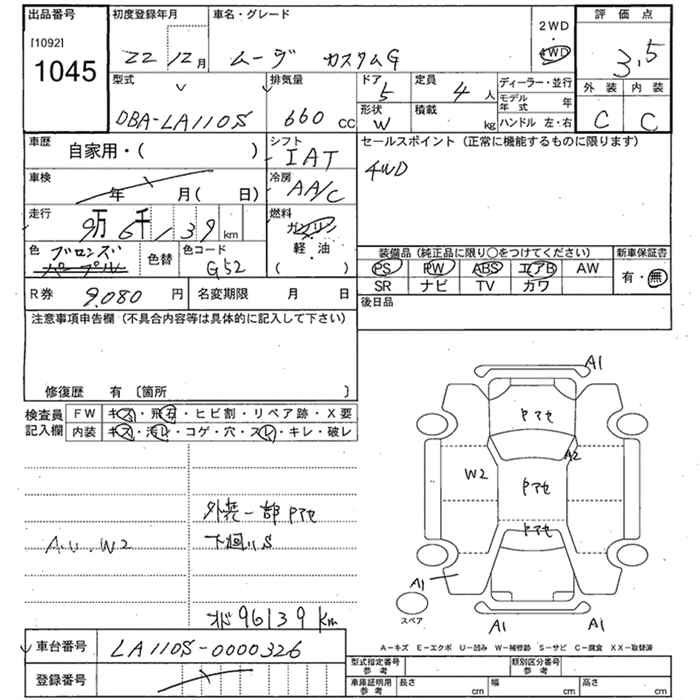 出品番号
[1092]
1045
初度登録年月
22 12月
車名・グレード
ムーヴ カスタムG
2WD
・
4WD
評価点
3.5
外装 内装
C C
型式
DBA-LA110S
排気量
660 cc
ドア 5
定員 4 人
形状 W
積載 kg
ディーラー・並行
モデル年式 年
ハンドル 左・右
車歴
自家用・( )
シフト
IAT
セールスポイント (正常に機能するものに限ります)
4WD
車検
年 月( 日)
冷房
AA/C
走行
9万6千139km
燃料
ガソリン
・
軽・油
( )
色 ブロンズ
パープル
色替
色コード
G52
装備品 (純正品に限り○をつけてください)
PS PW ABS エアB AW
SR ナビ TV カワ
新車保証書
有・無
R券 9.080 円
名変期限 月 日
後日品
注意事項申告欄 (不具合内容等は具体的に記入して下さい)
修復歴 有 〔箇所 〕
検査員記入欄
FW キズ・飛石・ヒビ割・リペア跡・X要
内装 キズ・汚レ・コゲ・穴・スレ・キレ・破レ
A.U.W2
外装一部Pアセ
下廻りS
96139 km
A1
Pアセ
A2
W2
Pアセ
Pアセ
A1
A1
A1
スペア
A－キズ E－エクボ U－凹み W－補修跡 S－サビ C－腐食 XX－取替済
車台番号 LA110S-0000326
登録番号
型式指定番号
参考
類別区分番号
参考
車庫証明用
参考
長さ cm
幅 cm
高さ cm